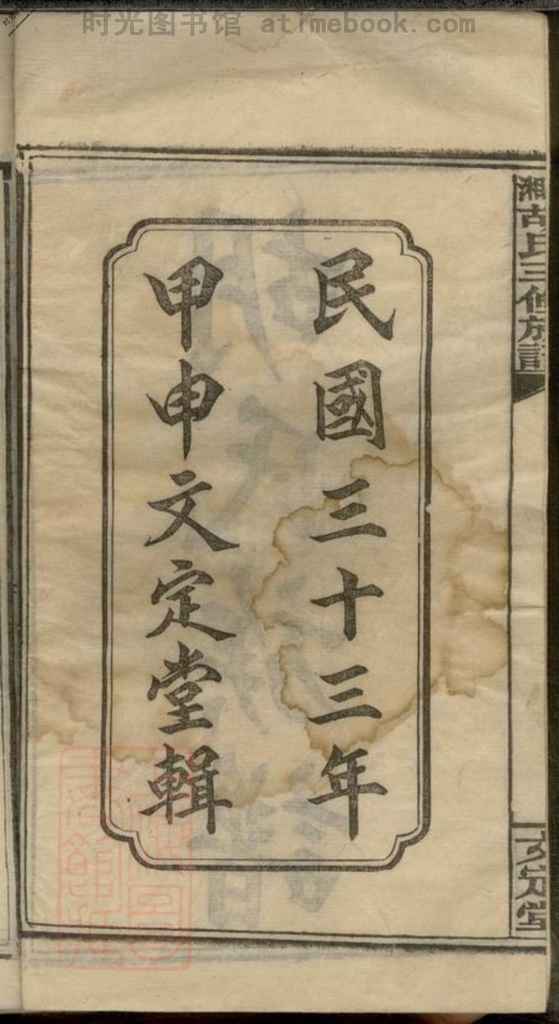 时光图书馆 atimebook.com
民國三十三年
甲申文定堂輯
湘胡氏三修族譜
文定堂